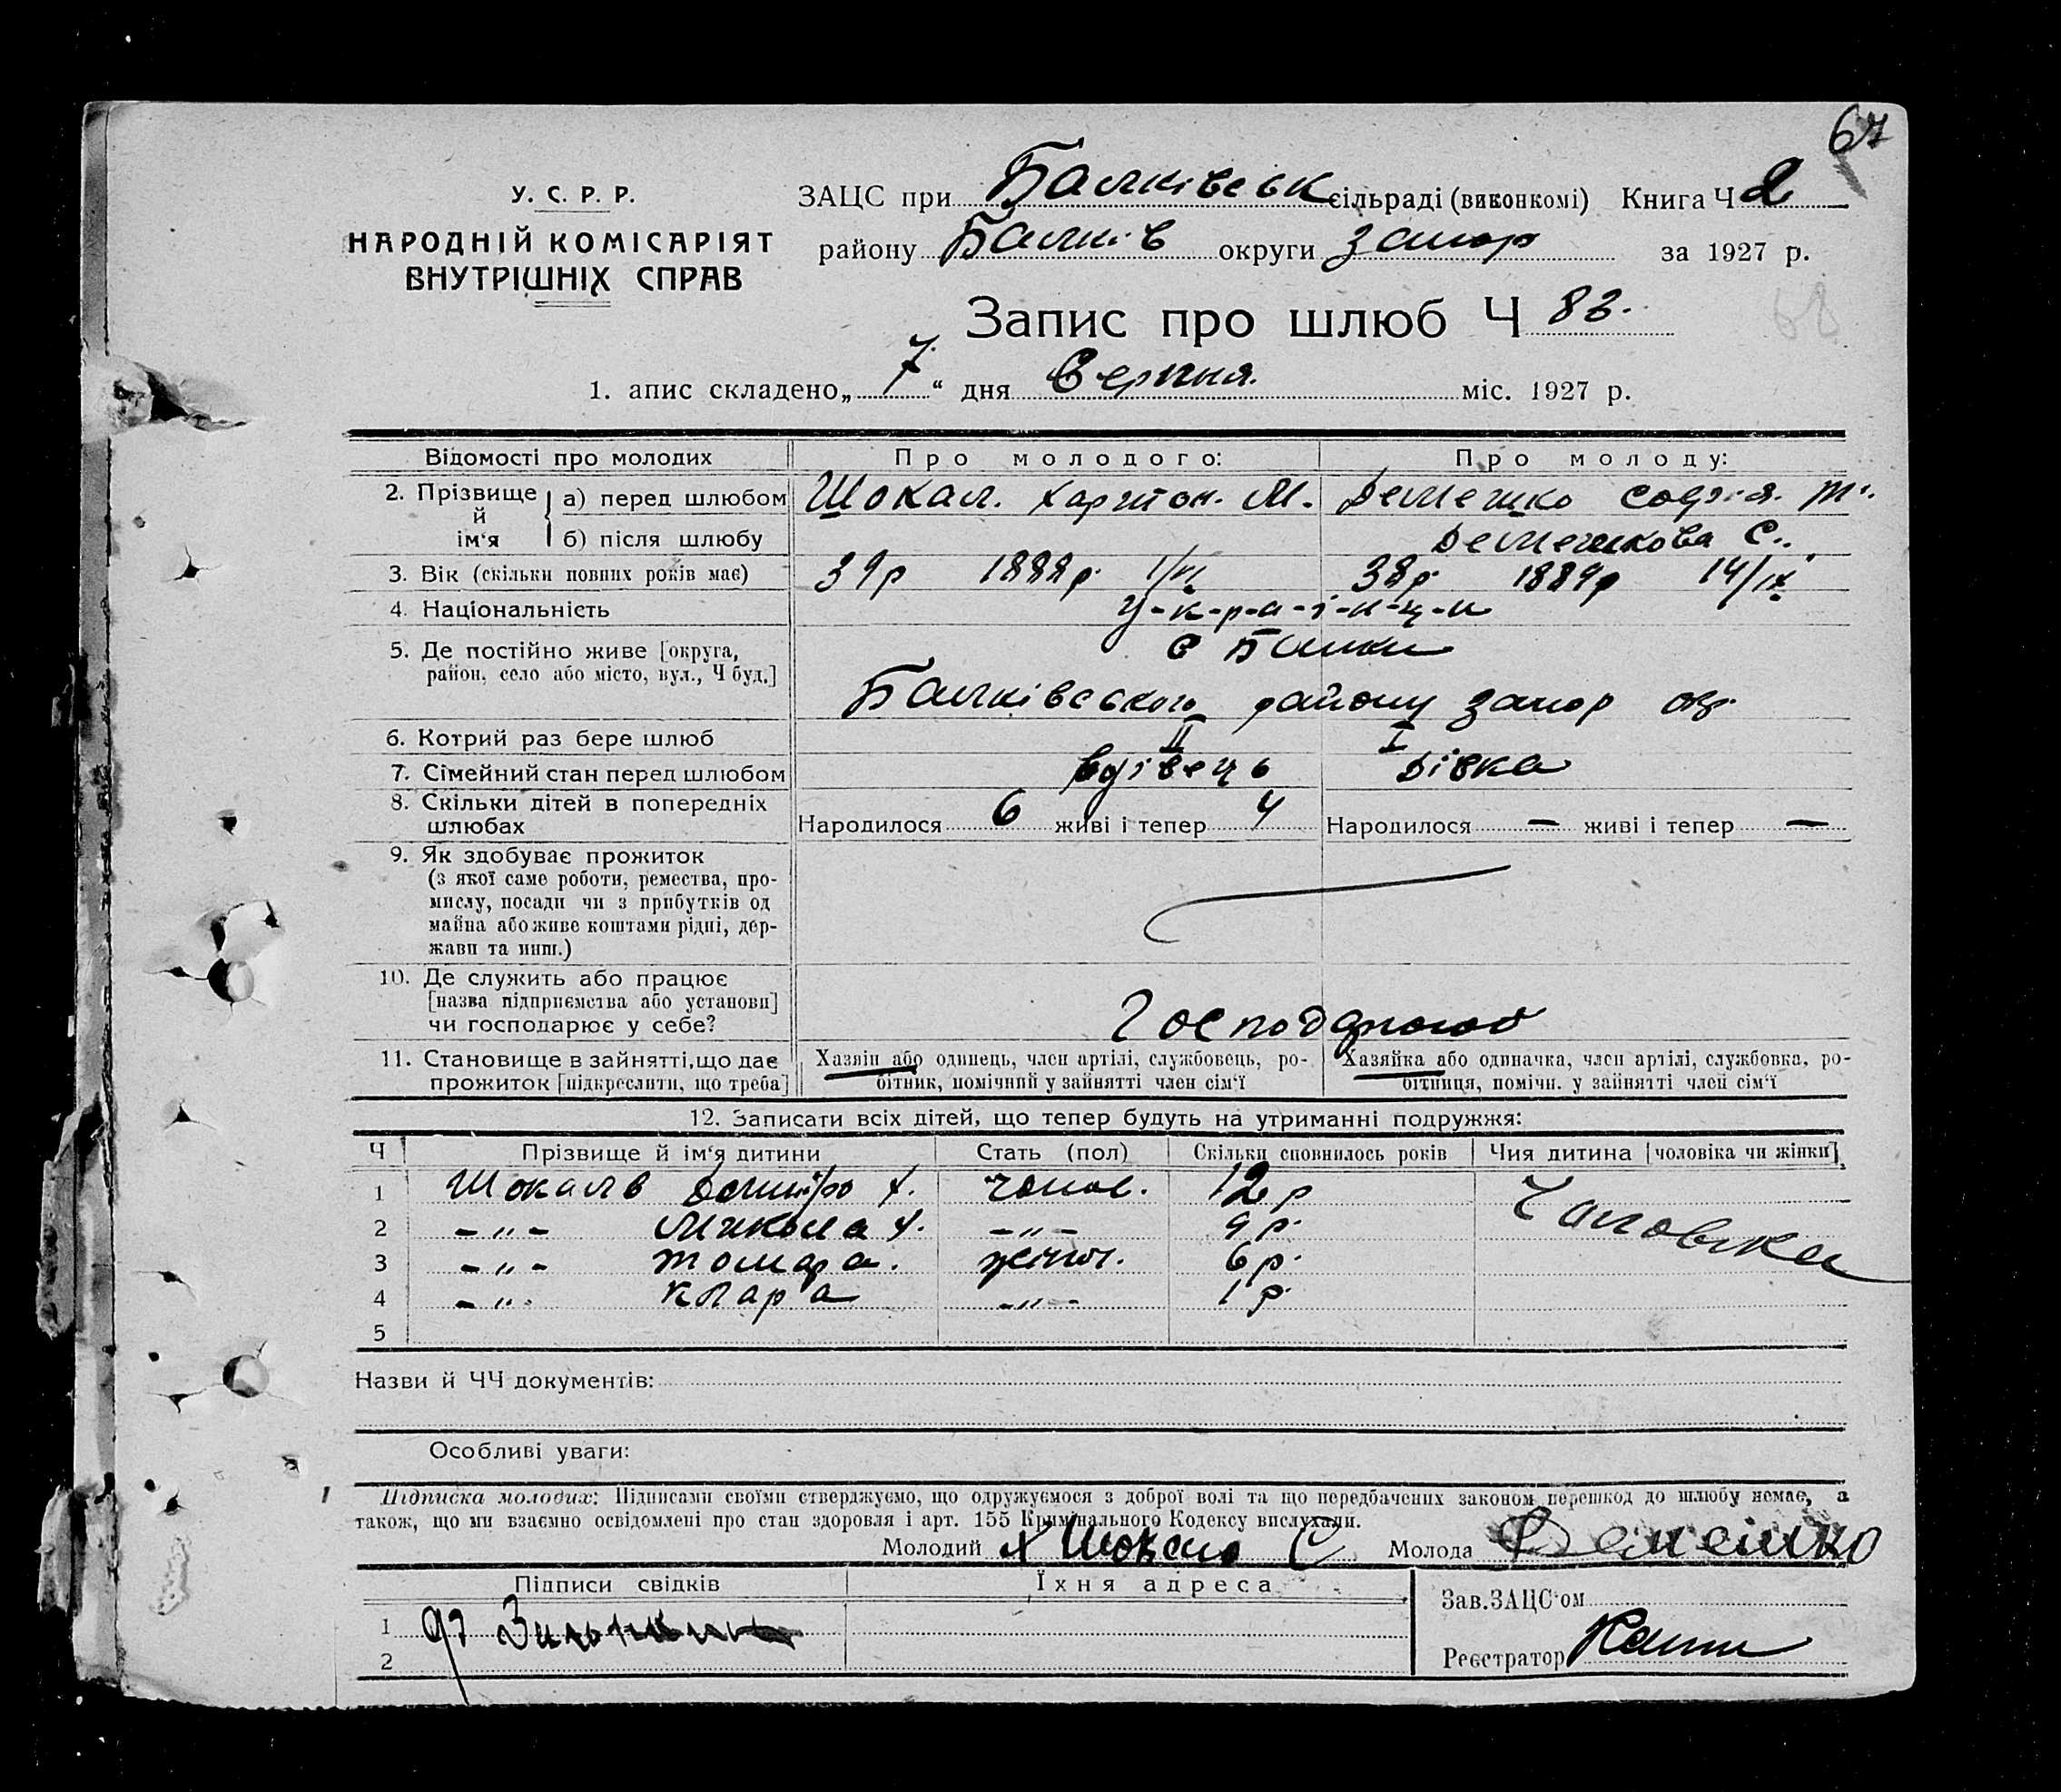 67
У. С. Р. Р.
НАРОДНІЙ КОМІСАРІЯТ
ВНУТРІШНІХ СПРАВ
ЗАЦС при Балківськ сільраді (виконкомі) Книга Ч 2
району Балків округи Запор за 1927 р.
68
Запис про шлюб Ч 83.
1. апис складено „ 7 “ дня Серпня. міс. 1927 р.
Відомості про молодих Про молодого: Про молоду:
2. Прізвище й ім‘я а) перед шлюбом Шокал. Харитон. М. Демешко Софія.
б) після шлюбу Демешкова С.
3. Вік (скільки повних років має) 39р 1888р. 1/VI 38р. 1889р 14/IX
4. Національність У-к-р-а-ї-н-ц-и
5. Де постійно живе [округа, с Балки
район, село або місто, вул., Ч буд.] Балківського району Запор окр.
6. Котрий раз бере шлюб II I
7. Сімейний стан перед шлюбом вдівець Дівка
8. Скільки дітей в попередніх
шлюбах Народилося 6 живі і тепер 4 Народилося — живі і тепер —
9. Як здобуває прожиток
(з якої саме роботи, ремества, про-
мислу, посади чи з прибутків од
майна або живе коштами рідні, дер-
жави та инш.)
10. Де служить або працює
[назва підприємства або установи]
чи господарює у себе?
11. Становище в зайнятті, що дає Хазяїн або одинець, член артілі, службовець, ро- Хазяйка або одиначка, член артілі, службовка, ро-
прожиток [підкреслити, що треба] бітник, помічний у зайнятті член сім‘ї бітниця, помічн. у зайнятті член сім‘ї
12. Записати всіх дітей, що тепер будуть на утриманні подружжя:
Ч Прізвище й ім‘я дитини Стать (пол) Скільки сповнилось років Чия дитина [чоловіка чи жінки]
1 Шокалв Дмитро Х. чолов. 12р
2 -„- Микола Х. -„- 9 р. Чоловіка
3 -„- Томара. жіноч. 6 р.
4 -„- Клара -„- 1 р.
5
Назви й ЧЧ документів:
Особливі уваги:
Підписка молодих: Підписами своїми стверджуємо, що одружуємося з доброї волі та що передбачених законом перешкод до шлюбу немає, а
також, що ми взаємно освідомлені про стан здоровля і арт. 155 Кримінального Кодексу вислухали.
Молодий Х Шокало Молода Демешко
Підписи свідків Їхня адреса
Зав. ЗАЦС‘ом
1
2
Реєстратор